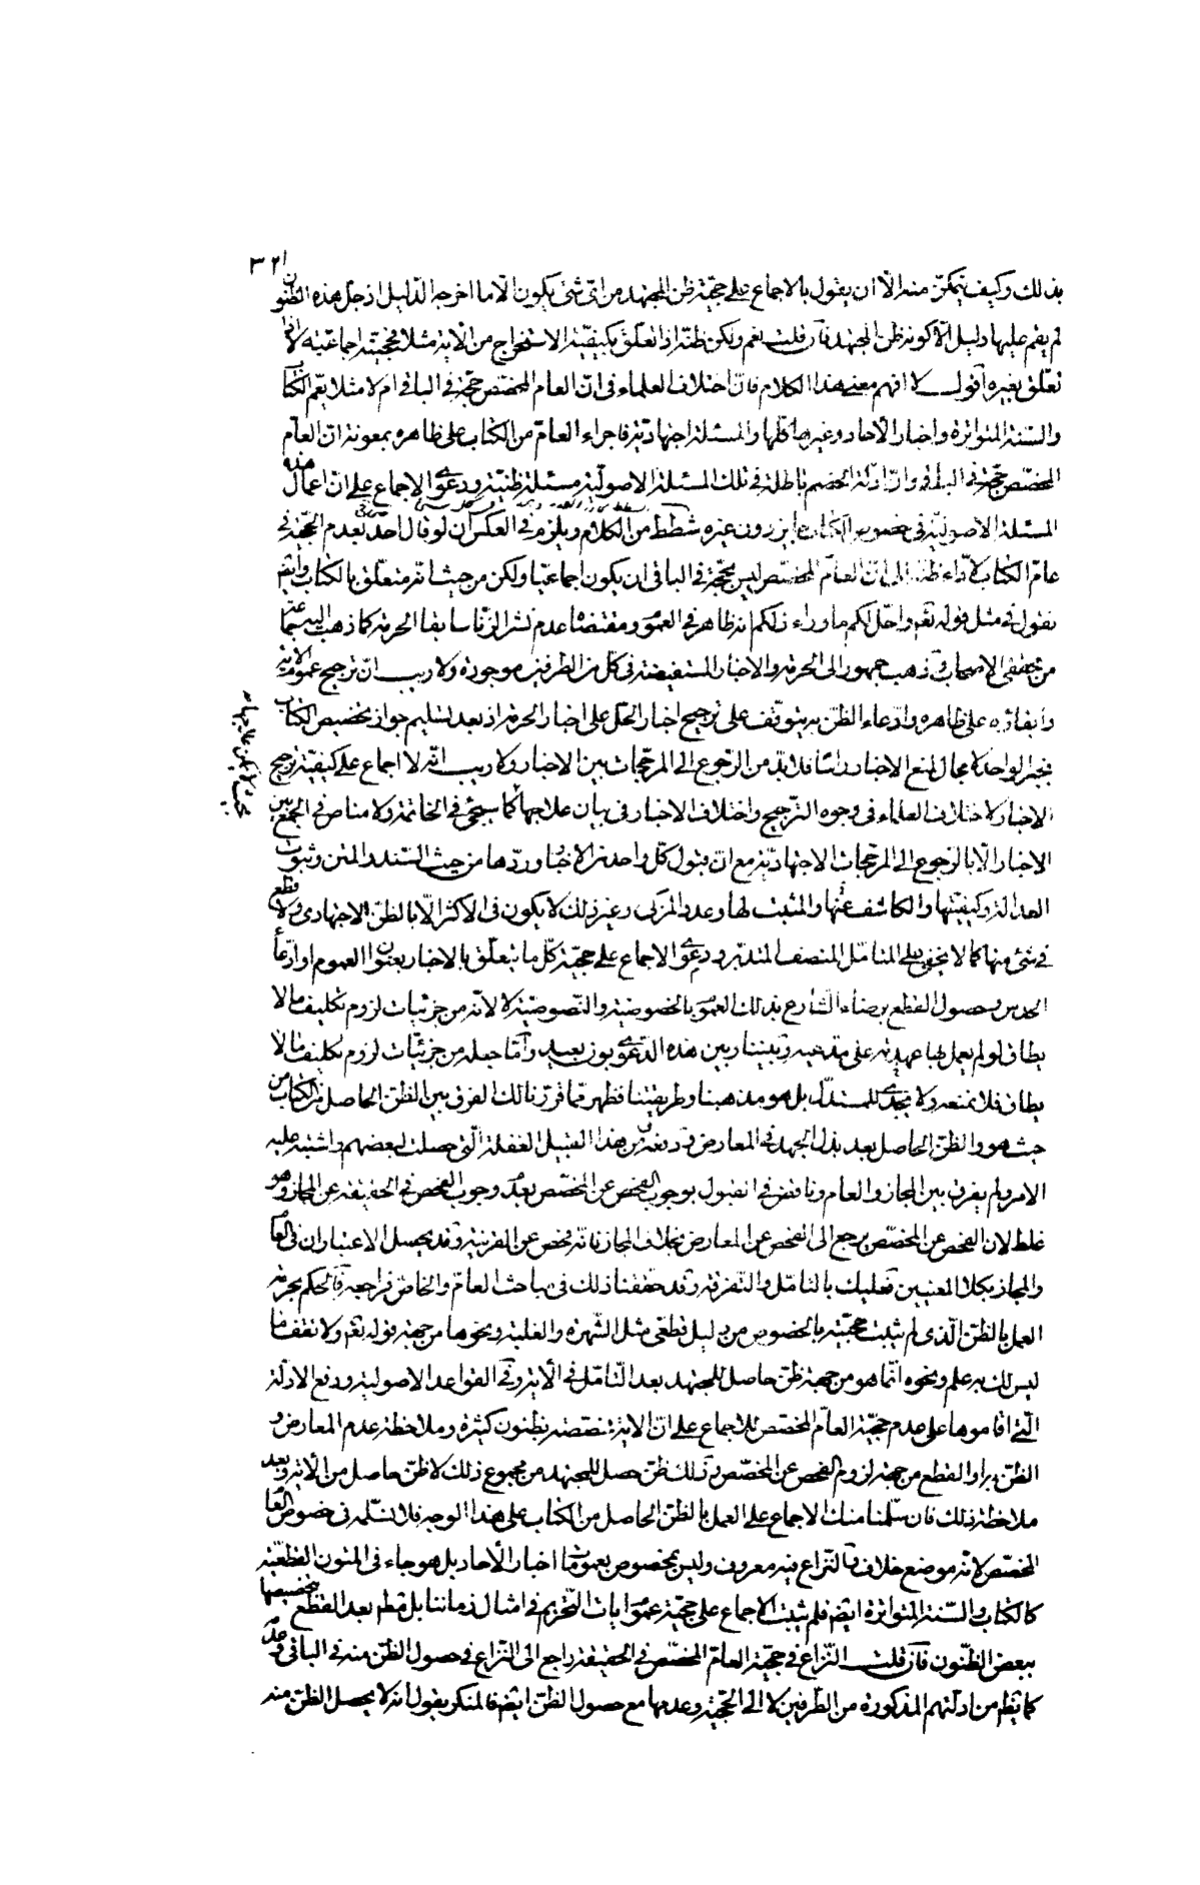 ٣٢١
بذلك وكيف يتمكن منه الّا ان يقول بالاجماع على حجيّة ظن المجتهد من اىّ شئ يكون الّا ما اخرجه الدّليل اذ جلّ هذه الظنون
لم يقم عليها دليل الّا كونه ظن المجتهد فان قلت نعم ولكن ظنّه اذا تعلّق بكيفيّة الاستخراج من الآية مثلا فحجيّته اجماعيّة لا اذا
تعلّق بغيره اقول لا افهم معنى هذا الكلام فان اختلاف العلماء فى انّ العام المخصّص حجّة فى الباقى ام لا مثلا يعم الكتاب
والسّنة المتواترة واخبار الآحاد وغيرها كلّها والمسئلة اجتهاديّة فاجراء العامّ من الكتاب على ظاهره بمعونة انّ العامّ
المخصّص حجّة فى الباقى وانّ ادلّة الخصم باطلة فى تلك المسئلة الاصوليّة مسئلة ظنيّة ودعوى الاجماع على انّ اعمال هذه
المسئلة الاصوليّة فى خصوص الكتاب جايز دون غيره شطط من الكلام ويلزم فى العكس ان لو قال احد بعدم الحجّية فى
عامّ الكتاب لاداء ظنّه الى انّ العامّ المخصّص ليس بحجّة فى الباقى ان يكون اجماعيّا ولكن من حيث انّه متعلّق بالكتاب وايضا
نقول فى مثل قوله تعم واحلّ لكم ما وراء ذلكم انه ظاهر فى العموم ومقتضاه عدم نشر الزنا سابقا الحرمة كما ذهب اليه جماعة
من محققى الاصحاب وذهب جمهور الى الحرمة والاخبار المستفيضة فى كلّ من الطرفين موجودة ولا ريب انّ ترجيح عموم الآية
وابقاؤه على ظاهره وادّعاء الظنّ به يتوقّف على ترجيح اخبار الحلّ على اخبار الحرمة اذ بعد تسليم جواز تخصيص الكتاب
بخبر الواحد لا مجال لمنع الاخبار راسا فلا بدّ من الرّجوع الى المرجّحات بين الاخبار ولا ريب انّه لا اجماع على كيفيّة ترجيح
الاخبار لاختلاف العلماء فى وجوه التّرجيح واختلاف الاخبار فى بيان علاجها كما سيجئ فى الخاتمة ولا مناص فى الجمع بين
الاخبار الّا بالرّجوع الى المرجّحات الاجتهاديّة مع انّ قبول كلّ واحد من الاخبار وردّها من حيث السّند والمتن وثبوت
العدالة وكيفيّتها والكاشف عنها والمثبت لها وعدد المزكّى وغير ذلك لا يكون فى الاكثر الّا بالظنّ الاجتهادى ولا قطع
فى شئ منها كما لا يخفى على المتامّل المنصف المتدبّر ودعوى الاجماع على حجيّة كلّ ما يتعلّق بالاخبار بعنوان العموم او ادّعاء
الحدس وحصول القطع برضاء الشّارع بذلك العموم بالخصوصيّة والنّصوصيّة لا لانّه من جزئيات لزوم تكليف ما لا
يطاق لو لم يعمل بها عهدته على مدّعيه وبيننا وبين هذه الدّعوى بون بعيد وامّا جعله من جزئيّات لزوم تكليف ما لا
يطاق فلا نمنعه ولا يجدى للمستدلّ بل هو مذهبنا وطريقتنا فظهر ممّا قررنا لك الفرق بين الظنّ الحاصل من الكتاب من
حيث هو والظنّ الحاصل بعد بذل الجهد فى المعارض ودفعه ومن هذا القبيل الغفلة الّتى حصلت لبعضهم واشتبه عليه
الامر ولم يفرق بين المجاز والعام وناقض فى القول بوجوب الفحص عن المخصّص بعدم وجوب الفحص فى الحقيقة عن المجاز وهو
غلط لان الفحص عن المخصّص يرجع الى الفحص عن المعارض بخلاف المجاز فانّه فحص عن القرنية وقد يحصل الاعتباران فى العامّ
والمجاز بكلا المعنيين فعليك بالتامّل والتّفرقة وقد حققنا ذلك فى مباحث العامّ والخاصّ فراجعه فالحكم بحرمة
العمل بالظنّ الّذى لم يثبت حجيّته بالخصوص من دليل قطعى مثل الشّهرة والغلبة ونحوها من جهة قوله تعم ولا تقف ما
ليس لك به علم ونحوه انّما هو من جهة ظنّ حاصل للمجتهد بعد التّامّل فى الآية وفى القواعد الاصولية ودفع الادلّة
الّتى اقاموها على عدم حجيّة العامّ المخصّص للاجماع على انّ الآية مخصّصة بظنون كثيرة وملاحظة عدم المعارض و
الظنّ به او القطع من جهة لزوم الفحص عن المخصّص وذلك ظنّ حصل للمجتهد من مجموع ذلك لا ظنّ حاصل من الآية وبعد
ملاحظة ذلك فان سلّمنا منك الاجماع على العمل بالظنّ الحاصل من الكتاب على هذا الوجه فلا نسلّمه فى خصوص العامّ
المخصّص لانّه موضع خلاف والنّزاع فيه معروف وليس بمخصوص بعمومات اخبار الآحاد بل هو جاء فى المتون القطعيّة
كالكتاب والسّنة المتواترة ايضم فلم يثبت الاجماع على حجيّة عموم ايات التّحريم فى امثال زماننا بل مطم بعد القطع بتخصيصها
ببعض الظّنون فان قلت النّزاع فى حجيّة العامّ المخصّص فى الحقيقة راجع الى النّزاع فى حصول الظّن منه فى الباقى وعدمه
كما يظهر من ادلّتهم المذكورة من الطّرفين لا الى الحجّيّة وعدمها مع حصول الظنّ ايضم فالمنكر يقول انه لا يحصل الظنّ منه